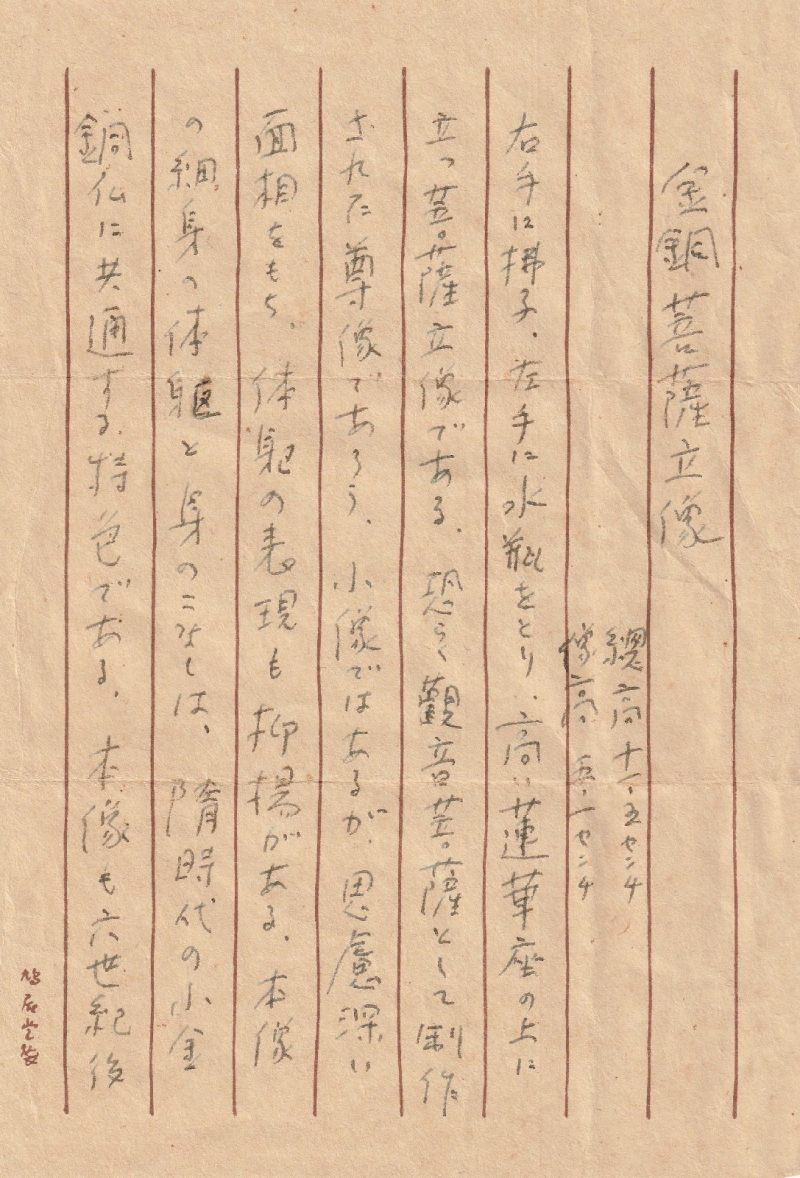 金銅菩薩立像
総高 十一・五センチ
像高 五・一センチ
右手に払子、左手に水瓶をとり、高い蓮華座の上に
立つ菩薩立像である。恐らく観音菩薩として制作
された尊像であろう。小像ではあるが、思慮深い
面相をもち、体躯の表現も抑揚がある。本像
の細身の体躯と身のこなしは、隋時代の小金
銅仏に共通する特色である。本像も六世紀後
鳩居堂製